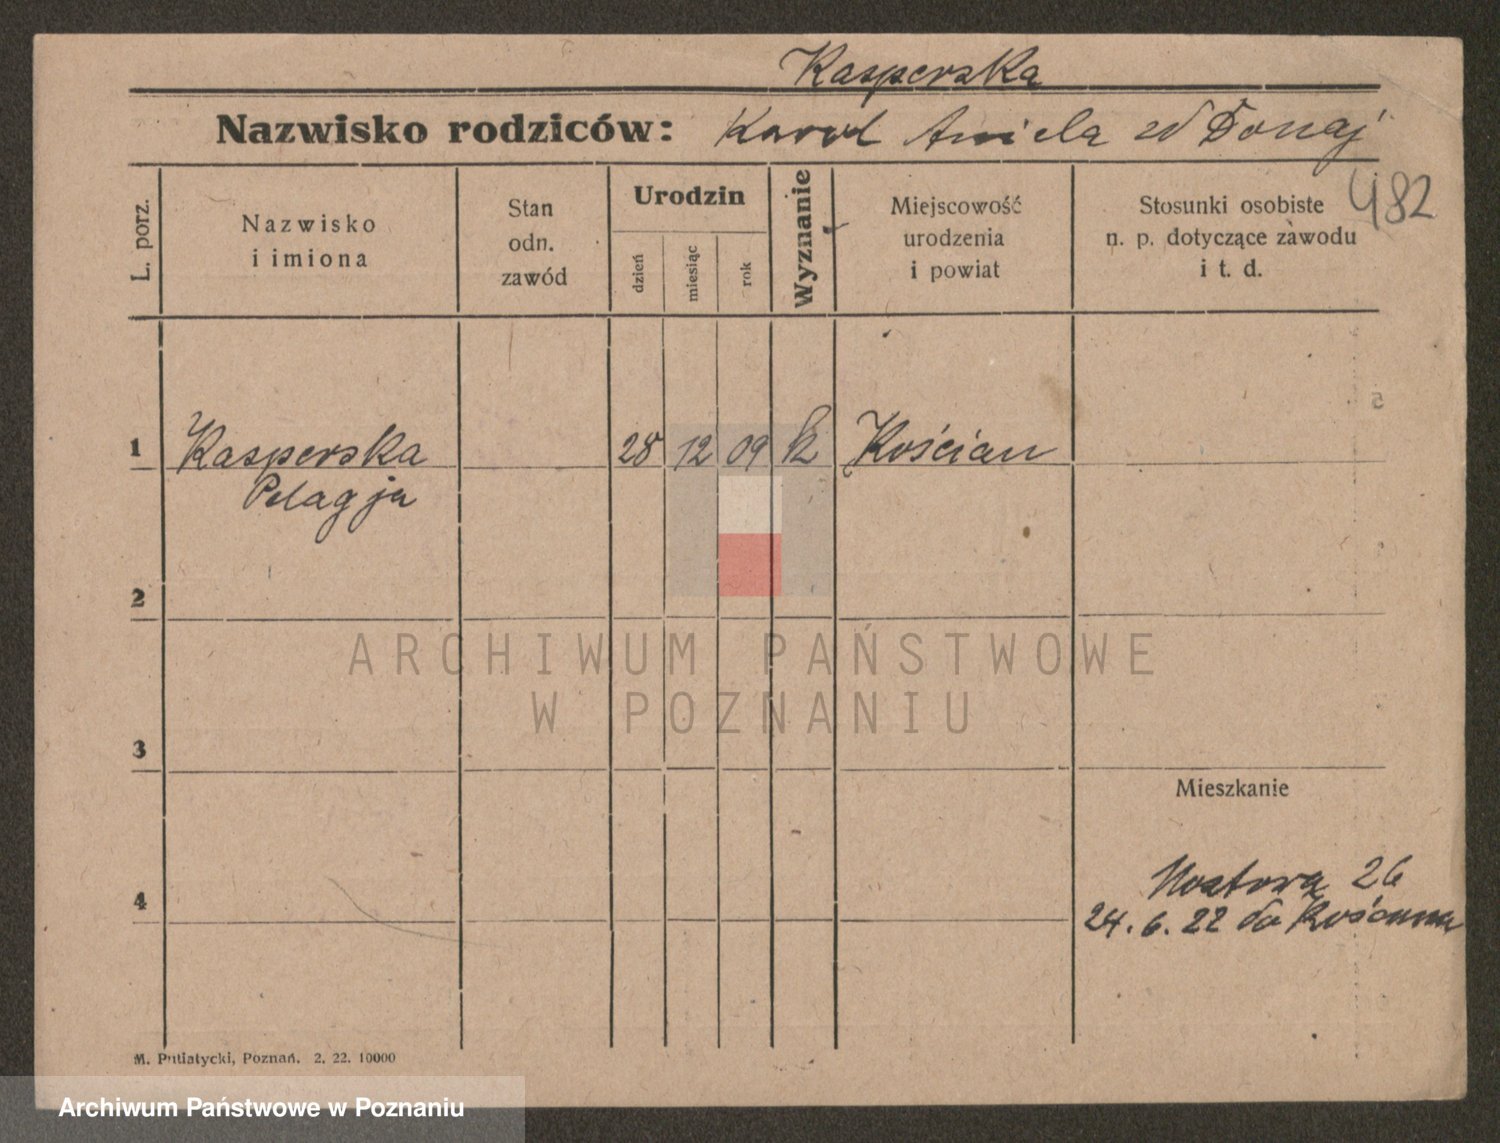 Kasperska
Nazwisko rodziców: Karol Aniela zd Donaj
482
L. porz.
Nazwisko
i imiona
Stan
odn.
zawód
Urodzin
dzień
miesiąc
rok
Wyznanie
Miejscowość
urodzenia
i powiat
Stosunki osobiste
n. p. dotyczące zawodu
i t. d.
1 Kasperska 28 12 09 k Kościan
Pelagja
2
3
4
ARCHIWUM PAŃSTWOWE
W POZNANIU
Mieszkanie
26
24.6.22 do
M. Putiatycki, Poznań. 2. 22. 10000
Archiwum Państwowe w Poznaniu